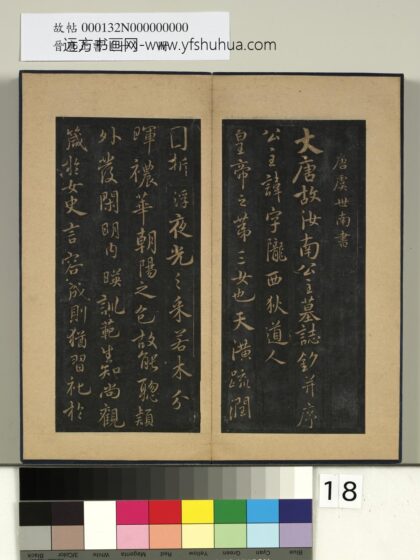 故帖 000132N000000000
远方书画网-www.yfshuhua.com
唐虞世南書
大唐故汝南公主墓誌銘并序
公主諱字隴西狄道人
皇帝之第三女也天潢疏潤
圓折浮夜光之采若木分
暉穠華朝陽之色故能聰穎
外發閑明內暎訓範生知尚觀
箴於女史言容成則猶習礼於
18
Black
3/Color
White
Magenta
Red
Yellow
Green
Cyan
Blue